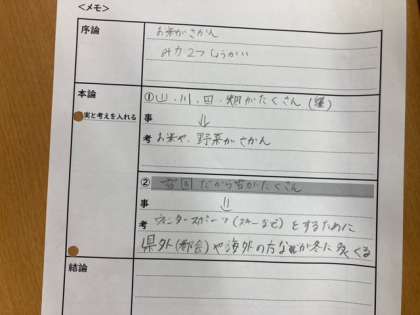 <メモ>
序論
お米がさかん
みりょく2つしょうかい
本論
実と考えを入れる
①山、川、田、畑がたくさん
事
↓
考 お米や、野菜がさかん
② 雪国だから雪がたくさん
事
↓
考 ウィンタースポーツ(スキーなど)をするために
県外(都会)や海外の方などが冬に多くくる
結論